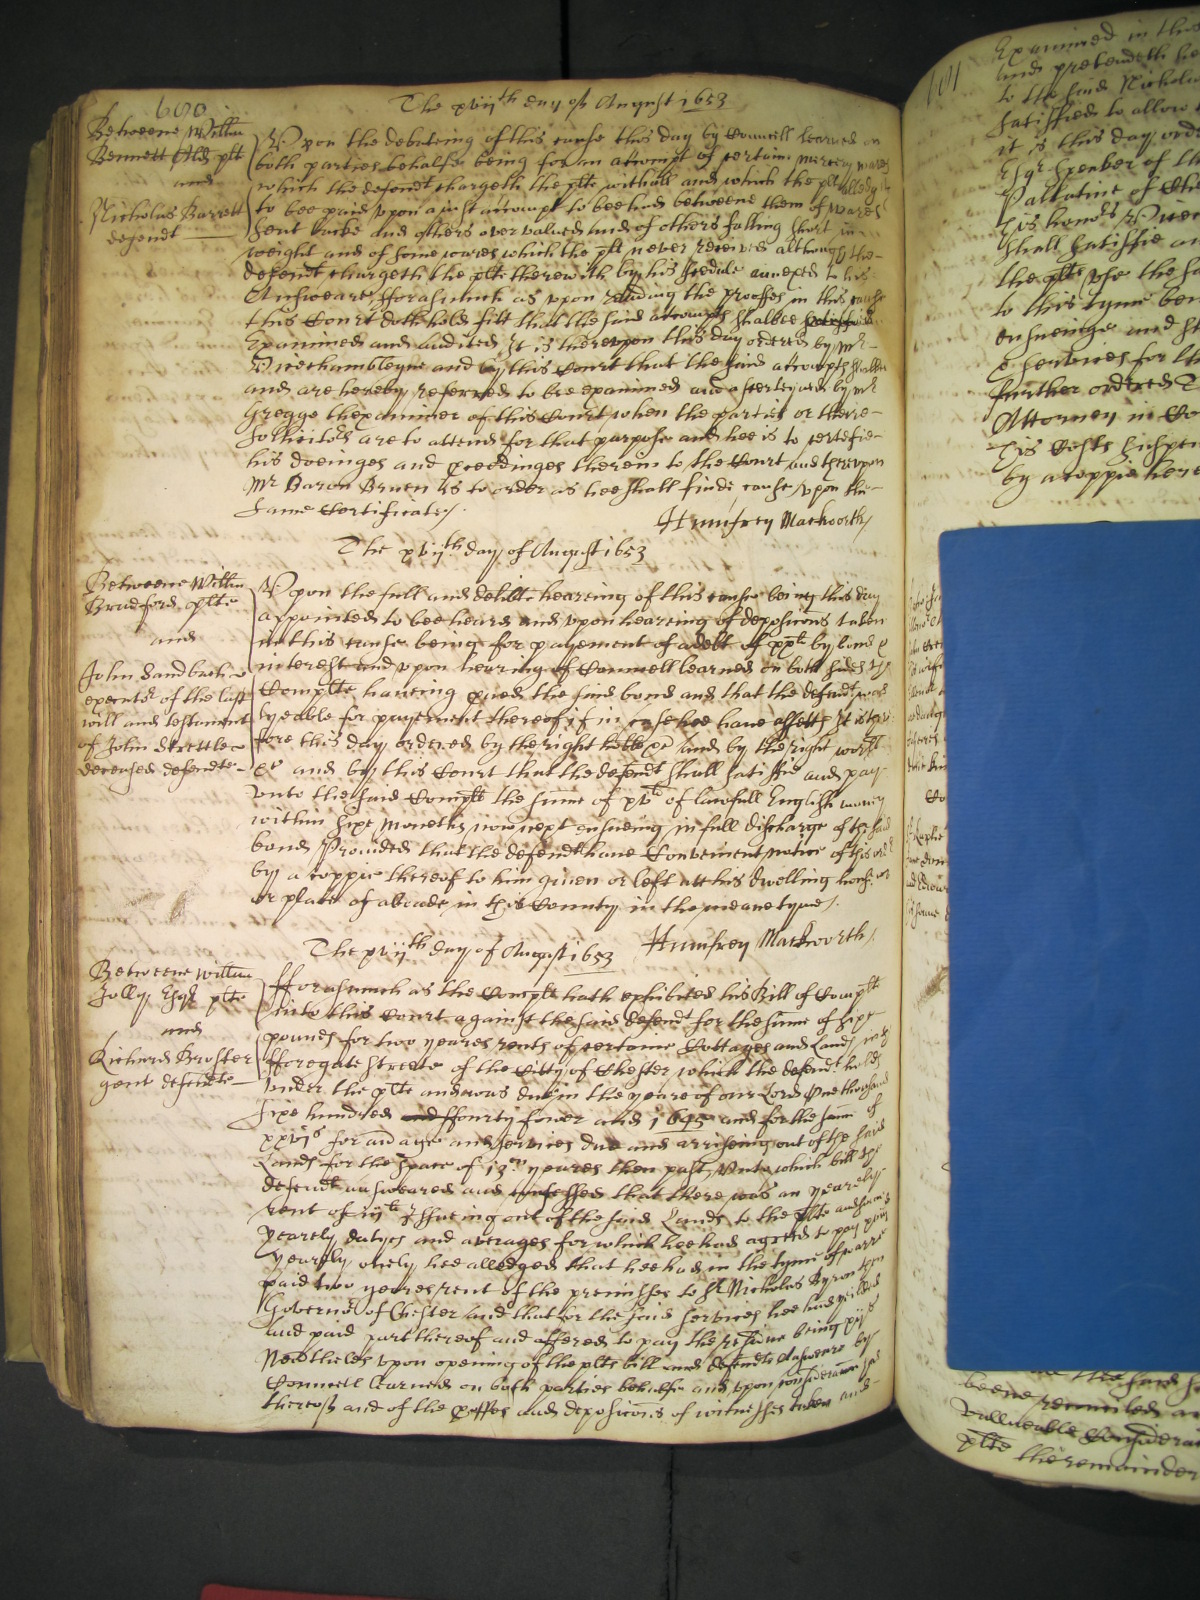 600
The xvijth day of August 1653
Betweene Willm
Bennett Ald plt
and
Nicholas Barrett
defendt
Vpon the debateing of this cause this day by Councell learned on
both parties behalfe being for an accompt of certain mercery wares
which the defendt chargeth the plte withall and which the plt alledgeth
to bee paid vpon a just accompt to bee had betweene them of wares
sent backe and others over valued and of others falling short in
weight and of some wares which the plt never received although the
defendt chargeth the plte therewith by his scedule annexed to his
Answeare, fforasmuch as vpon reading the prooffes in this cause
this Court doth hold fitt that the said accompts shalbee
Examined and audited It is therevpon this day ordered by Mr
Vicechambleyne and by this Court that the said accompts shalbee
and are hereby referred to bee examined and by Mr
Gregge thexaminer of this Court, when the parties or there
sollicitors are to attend for that purpose and hee is to certefie
his doeinges and proceedinges therein to the Court and therevpon
Mr Baron Bruen is to order as hee shall finde cause vpon the
same Certificate/.
Humfrey Mackworth/
The xvijth day of August 1653
Betweene Willm
Bradford plte
and
John Sandbach
executor of the last
will and testament
of John
deceased defendte
Vpon the full and hearing of this cause being this day
appointed to bee heard and vpon hearing of deposicons taken
in this cause being for payement of a debt of xxli by bond &
interest and vpon hearing of Councell learned on both sides the
Complte haveing proved the said bond and that the defendt was
lyeable for payement thereof if in case hee have assetts, It is there
fore this day ordered by the right hoble &c and by the right worpll
&c and by this Court that the defendt shall satisfie and pay
vnto the said Complt the summe of xvli of lawfull English money
within sixe moneths now next ensueing in full discharge of the said
bond Provided that the defendt have Convenient notice of this order
by a coppie thereof to him given or left att his dwelling house
or place of aboade in this County in the meane tyme/.
Humfrey Mackworth/.
The xvijth day of August 1653
Betweene Willm
Jolly Esqr plte
and
Richard Broster
gent defendte
fforasmuch as the Complt hath exhibited his Bill of Complt
into this Court against the said defendt for the summe of sixe
pounds for two yeares rents of certaine Cottages and Lands
fforegate streete of the Citty of Chester which the defendt holds
vnder the plte and was due in the yeare of our Lord One thousand
sixe hundred and ffourty fower and 1645 and for the summe of
xxvjs for averages and services due and ariseing out of the said
Lands for the space of yeares then past, Vnto which bill the
defendt answeared and confessed that there was an yearely
rent of iijli yssueing out of the said Lands to the plte and some
yearely dutyes and averages for which hee had agreed to pay
yearely onely, hee alledged that hee had in the tyme of warre
paid two yeares rent of the premisses to Sr Nicholas Byron then
Governor of Chester and that for the said services hee had
and paid part thereof and offered to pay the residue being
Neverthelesse vpon opening of the plts bill and defendts Answeare by
Councell learned on both parties behalfe and vpon consideracon had
thereof and of the prooffes and deposicons of witnesses taken and
601
Examined in this
and pretendeth
to the said Nicholas
satisfied to allow
it is this day orde
Palatine of Che
his honors Vice
shall satisfie an
the plts vse the sa
to this tyme
ensueinge and
further ordered
Attorney in Co
his Costs
by a coppie here
beene reconciled
valleuable Considerac
plte the remainder